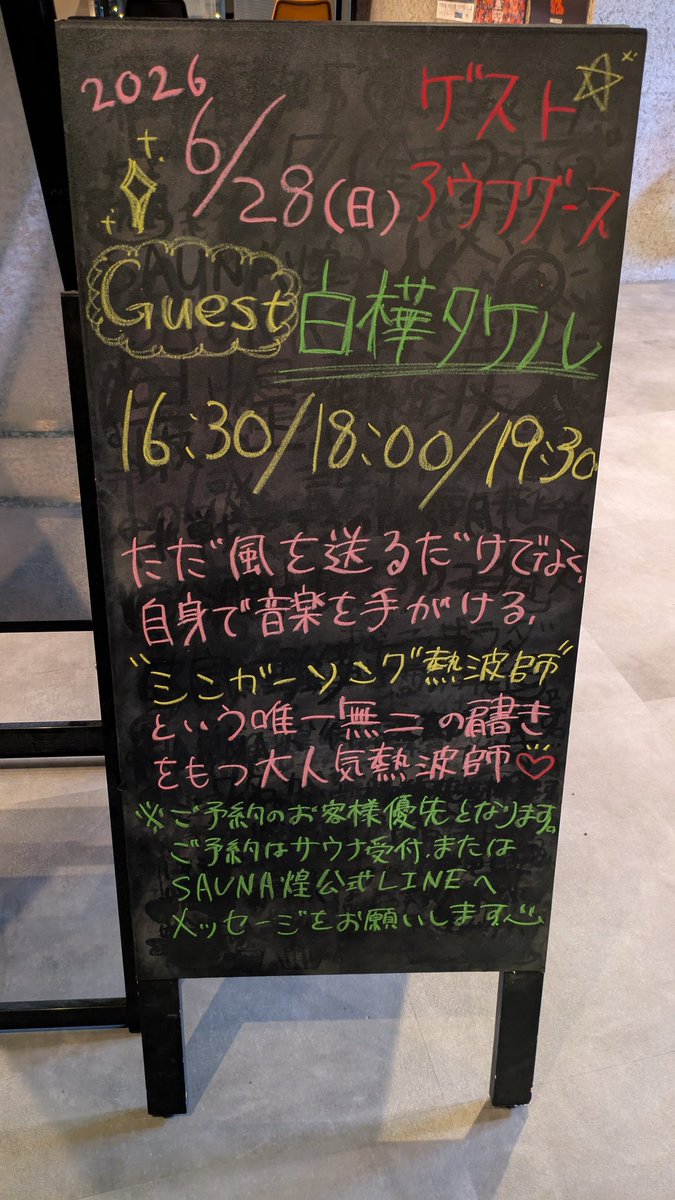 2026
6/28(日)
ゲスト
アウフグース
Guest 白樺タケル
16:30/18:00/19:30
ただ風を送るだけでなく、
自身で音楽を手がける、
"シンガーソング熱波師"
という唯一無二の肩書き
をもつ大人気熱波師♡
※ご予約のお客様優先となります。
ご予約はサウナ受付、または
SAUNA煌公式LINEへ
メッセージをお願いします